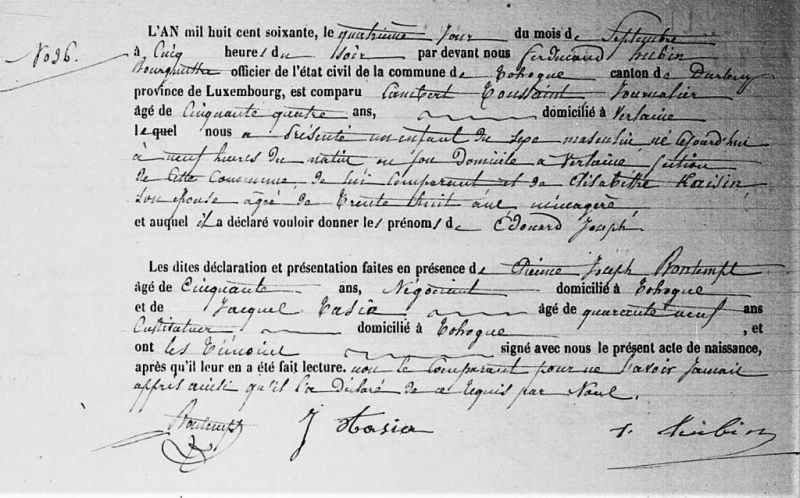 N° 36.
L'AN mil huit cent soixante, le quatrième Jour du mois de Septembre
à Cinq heures du Soir par devant nous Ferdinand Lubin
Bourgmestre officier de l'état civil de la commune de Tohogne canton de Durbuy
province de Luxembourg, est comparu Lambert Toussaint Journalier
âgé de Cinquante quatre ans, domicilié à Verlaine
lequel nous a Présenté un enfant du sexe masculin, né cejourd'hui
à neuf heures du matin en son Domicile a Verlaine section
de Cette Commune, de lui Comparant et de Elisabethe
son épouse agée de Trente huit ans ménagère
et auquel il a déclaré vouloir donner les prénoms de Édouard Joseph.
Les dites déclaration et présentation faites en présence de Pierre Joseph Bontempt
âgé de Cinquante ans, Négociant domicilié à Tohogne
et de Jacques Tasia âgé de quarante neuf ans
Instituteur domicilié à Tohogne, et
ont les Témoins signé avec nous le présent acte de naissance,
après qu'il leur en a été fait lecture. non le Comparant pour ne Savoir Jamais
appris ainsi qu'il l'a Déclaré de ce requis par Nous.
Bontempt J Tasia